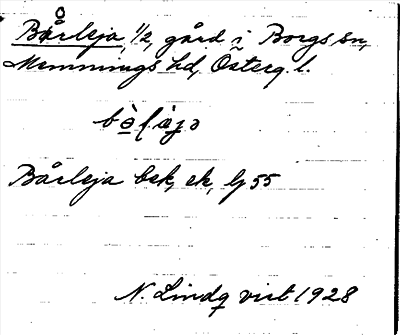 Bårleja, 1/2, gård i Borgs sn,
Memmings hd, Österg. l.
Bårleja bek, ek, lj 55
N. Lindq vist 1928